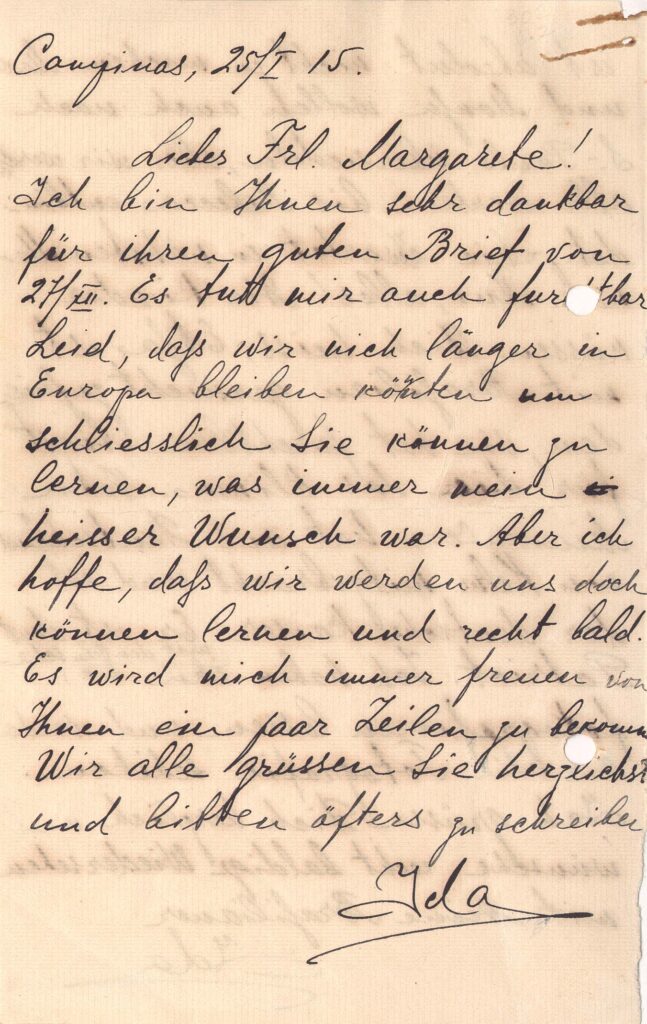 Campinas, 25/I 15.
Liebes Frl. Margarete!
Ich bin Ihnen sehr dankbar
für ihren guten Brief von
27/XII. Es tut mir auch fur tbar
Leid, daß wir nich länger in
Europa bleiben könnten um
schliesslich Sie können zu
lernen, was immer mein
heisser Wunsch war. Aber ich
hoffe, daß wir werden uns doch
können lernen und recht bald.
Es wird mich immer freuen von
Ihnen ein paar Zeilen zu bekomm
Wir alle grüssen Sie herzlichst
und bitten öfters zu schreiben
Ida